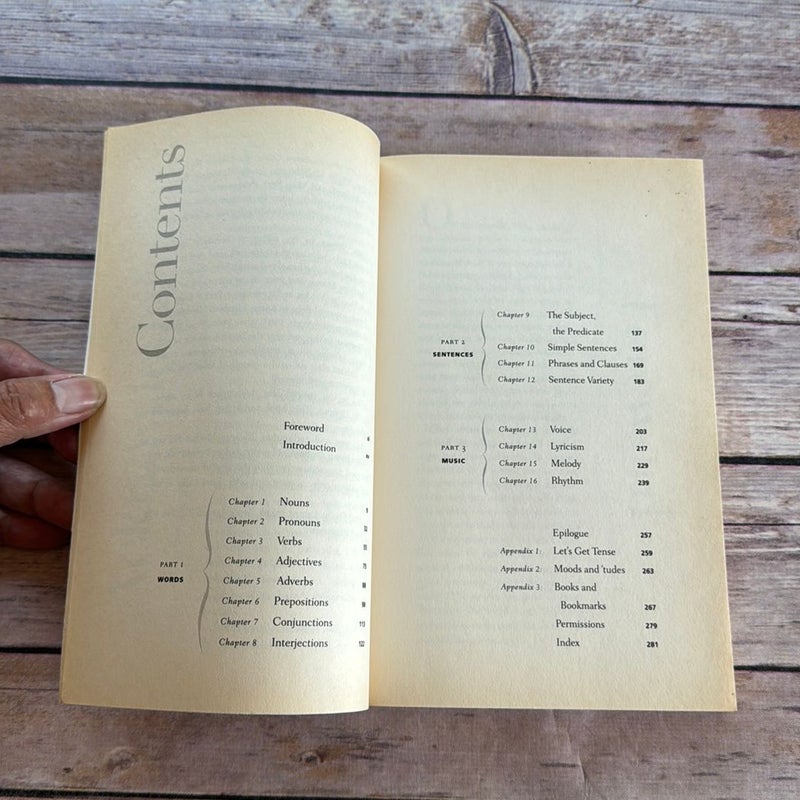 Contents
Foreword
Introduction
PART 1
WORDS
Chapter 1 Nouns
Chapter 2 Pronouns
Chapter 3 Verbs
Chapter 4 Adjectives
Chapter 5 Adverbs
Chapter 6 Prepositions
Chapter 7 Conjunctions 113
Chapter 8 Interjections 122
PART 2
SENTENCES
Chapter 9 The Subject,
the Predicate 137
Chapter 10 Simple Sentences 154
Chapter 11 Phrases and Clauses 169
Chapter 12 Sentence Variety 183
PART 3
MUSIC
Chapter 13 Voice 203
Chapter 14 Lyricism 217
Chapter 15 Melody 229
Chapter 16 Rhythm 239
Epilogue 257
Appendix 1: Let's Get Tense 259
Appendix 2: Moods and 'tudes 263
Appendix 3: Books and
Bookmarks 267
Permissions 279
Index 281